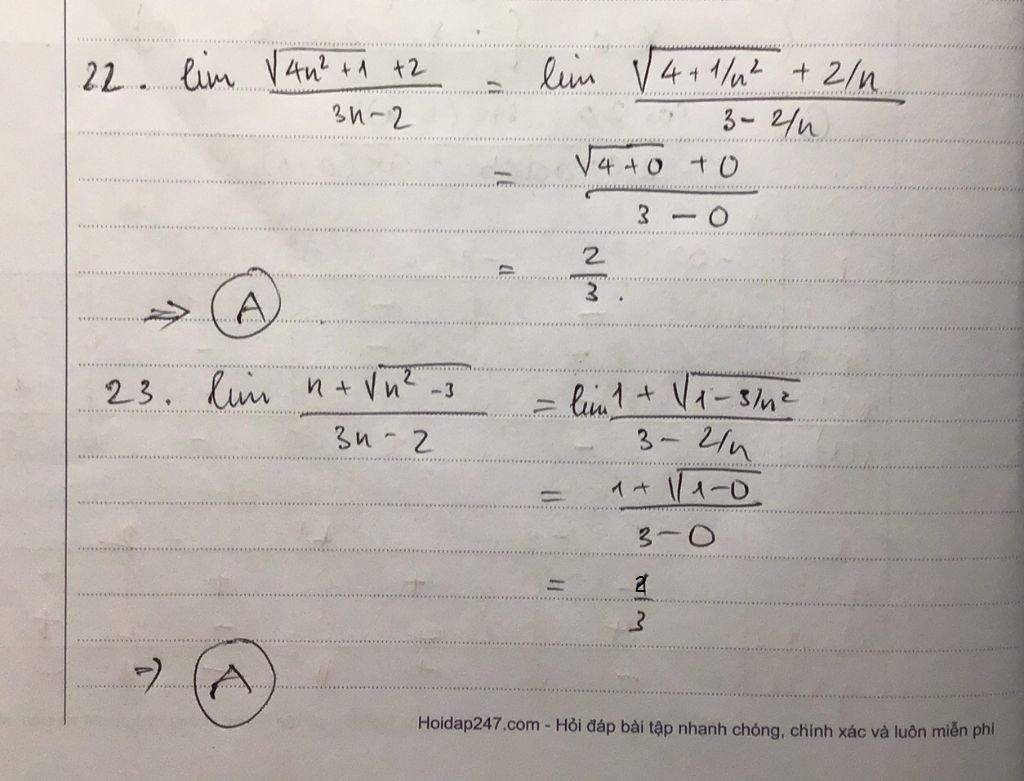 22. lim √(4n² + 1) + 2 / 3n - 2 = lim √(4 + 1/n²) + 2/n / 3 - 2/n
= √(4 + 0) + 0 / 3 - 0
= 2/3.
⇒ A
23. lim n + √(n² - 3) / 3n - 2 = lim 1 + √(1 - 3/n²) / 3 - 2/n
= 1 + √(1 - 0) / 3 - 0
= 2/3
⇒ A
Hoidap247.com - Hỏi đáp bài tập nhanh chóng, chính xác và luôn miễn phí